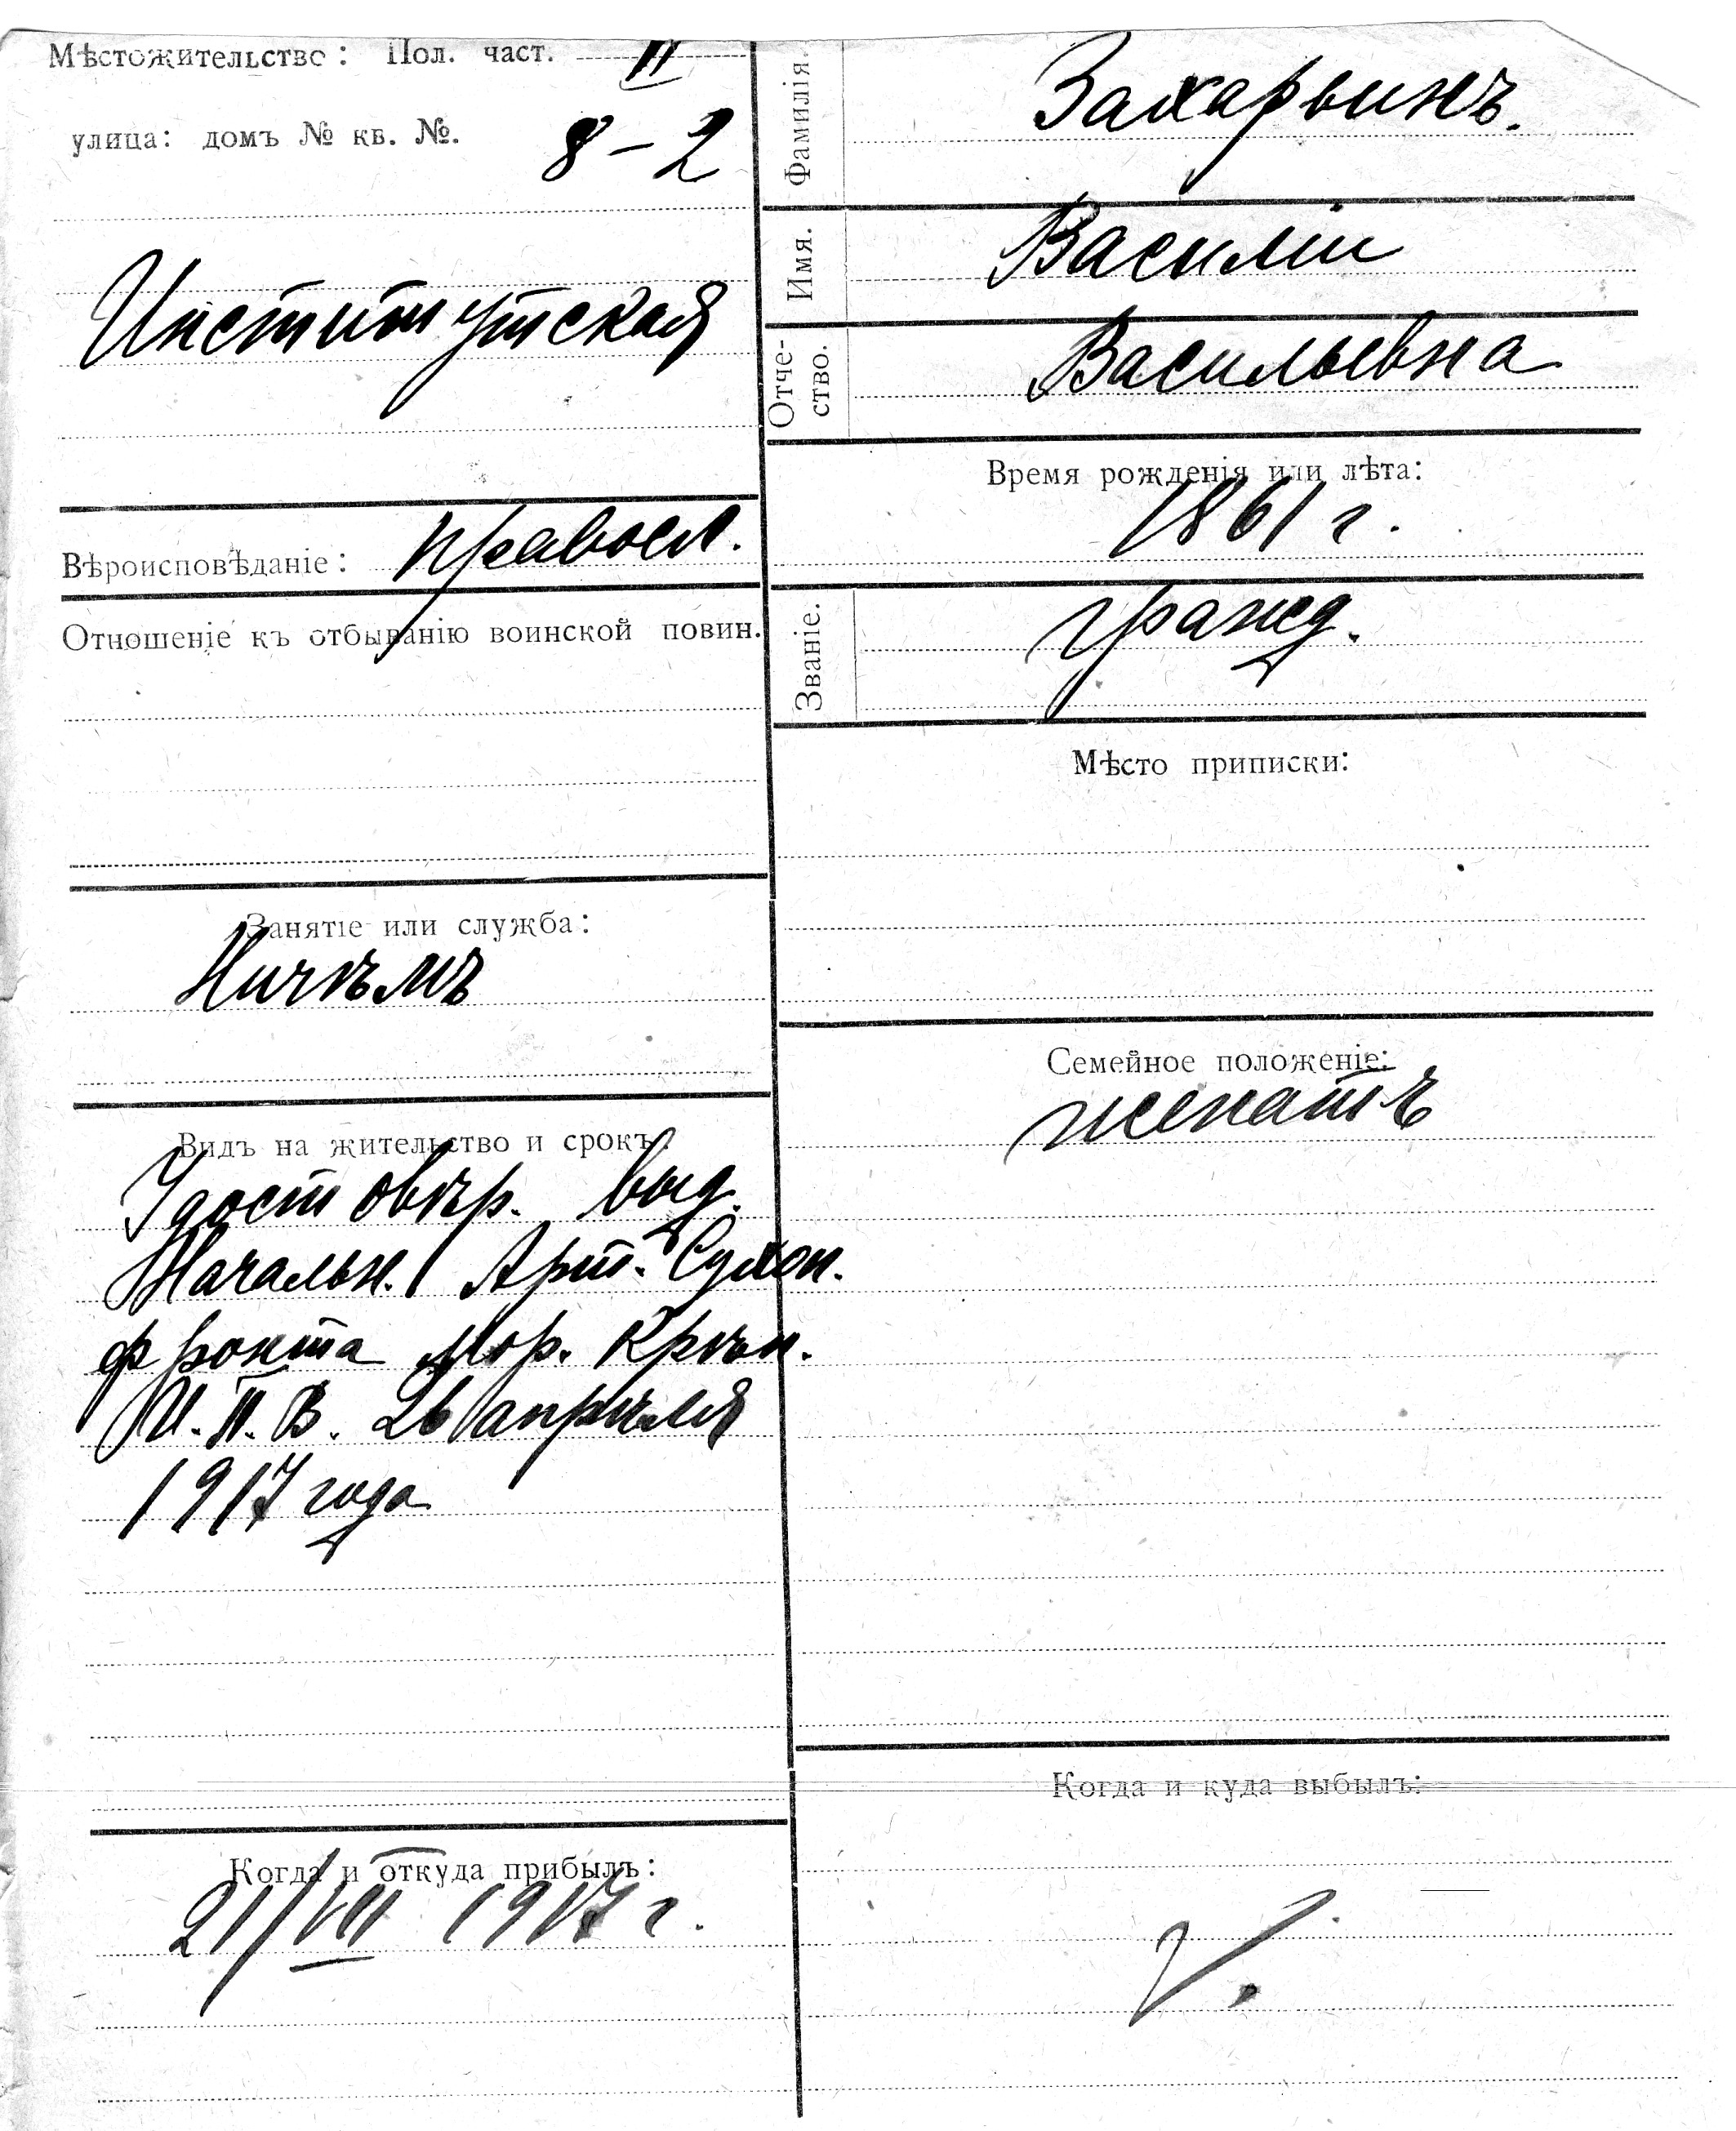 Мѣстожительство: Пол. част. II
улица: домъ № кв. №. 8 – 2
Институтская
Вѣроисповѣданіе: правосл.
Отношеніе къ отбыванію воинской повин.
Занятіе или служба:
Ничѣмъ
Видъ на жительство и срокъ:
Удостовѣр. выд.
Начальн. Арт. Сухоп.
фронта Мор. Крѣп.
И. П. В. 26 апрѣля
1917 года
Когда и откуда прибылъ:
21/VII 1917 г.
Фамилія. Захарьинъ.
Имя. Василіи
Отче-
ство. Васильевна
Время рожденія или лѣта:
1861 г.
Званіе. гражд.
Мѣсто приписки:
Семейное положеніе:
женатъ
Когда и куда выбылъ: